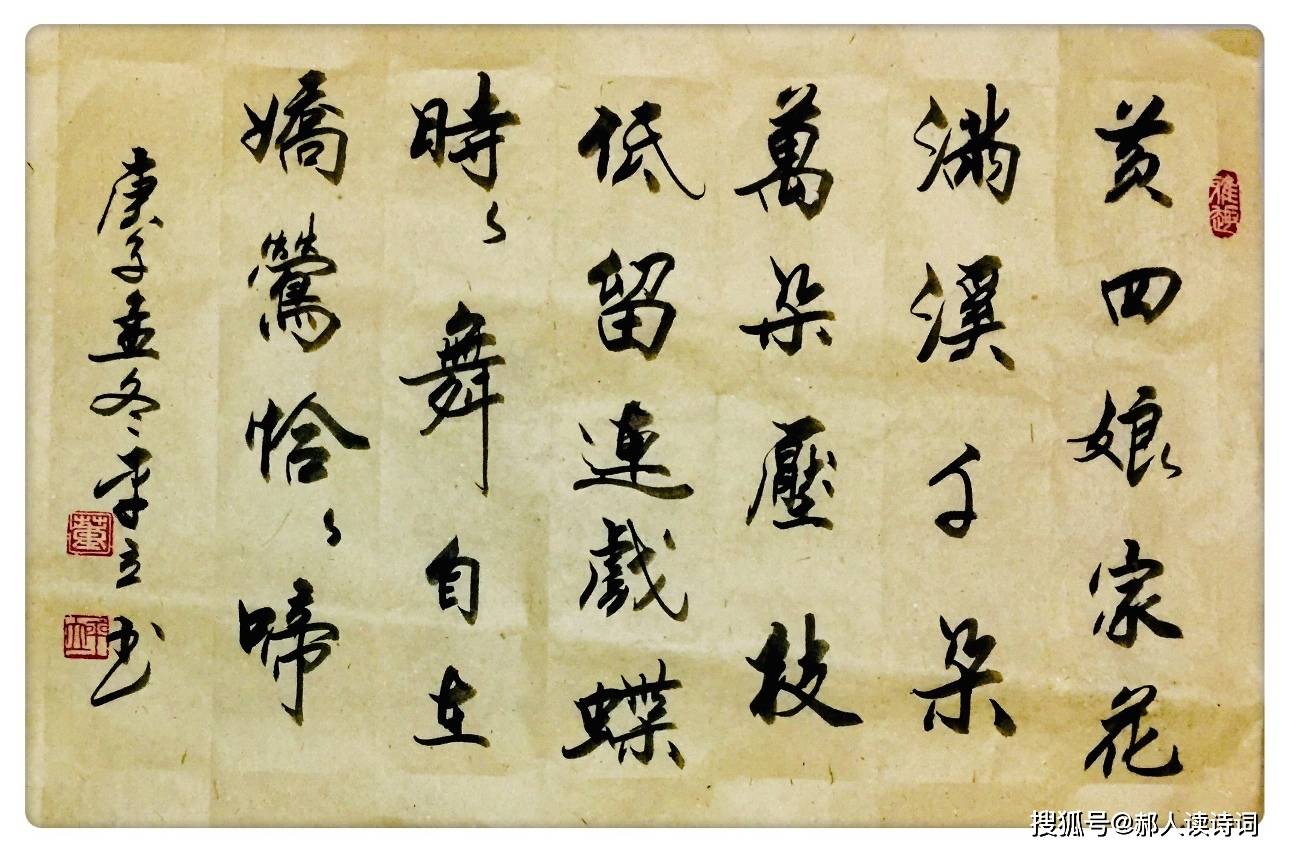 雅趣
黄四娘家花
滿溪千朵
萬朵壓枝
低留連戲蝶
時々舞自在
嬌鶯恰々啼
庚子孟冬平立书
董
平立
搜狐号@郝人读诗词